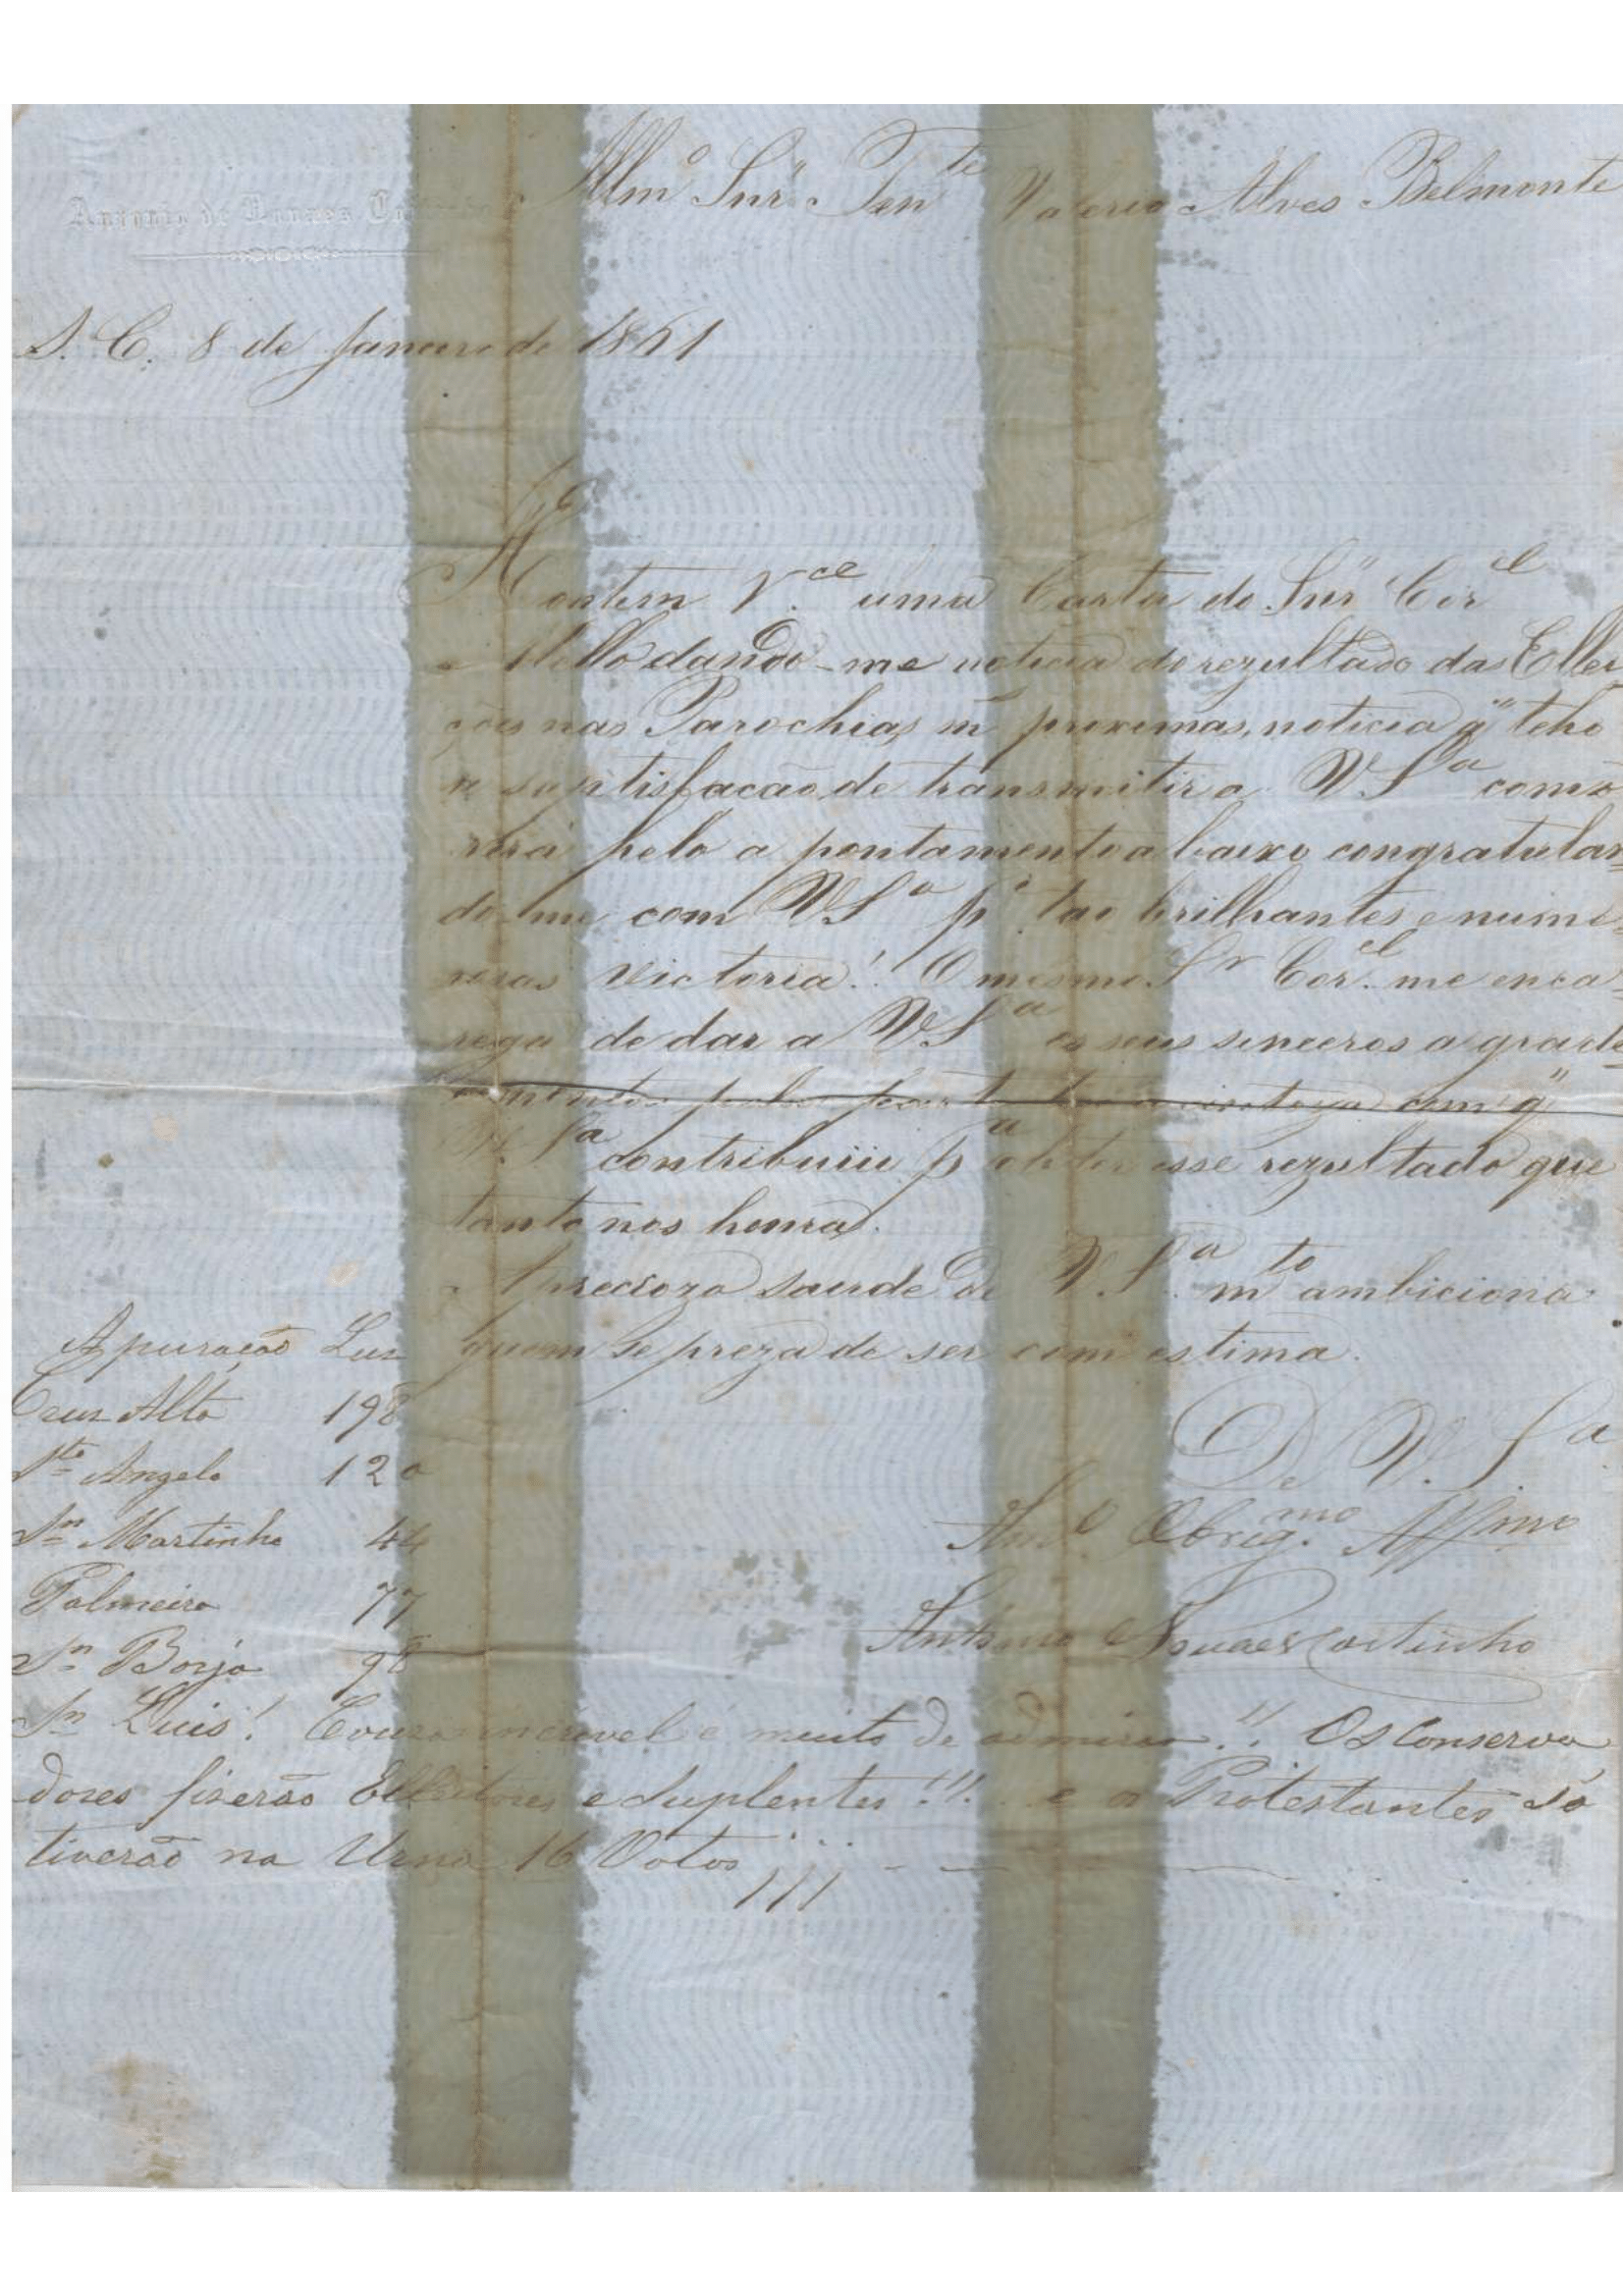 Antonio de Novaes Coutinho
Illm.º Snr. Ten.te Valerio Alves Belmonte
S. C. 8 de Janeiro de 1861
Hontem R.ce uma Carta do Snr Cor.el
Mello dando-me noticia do rezultado das Ellei
ções nas Parochias m proximas, noticia q' teho
a saptisfacão de transmitir a V.S.a como
verá pelo a pontamento a baixo congratulan-
do-me com V.S.a p.r tao brilhantes e nume-
rosas victoria! O mesmo S.r Cor.el me enca-
rega de dar a V.S.a os seus sinceros a grade-
cimentos pela com q'
V.S.a contribuiu p.a obter esse rezultado que
tanto nos honra.
A precioza saude de V.S.a m.to ambiciona
quem se preza de ser com estima.
De V. S.a
Am.º Obrig.mo Aff.mo
Antonio Novaes Coutinho
Apuração Luz
Cruz Alta 198
S.to Angelo 120
S.n Martinho 44
Palmeira 77
S.n Borja 98
S.n Luis! Couza incrivel e muito de admirar!! Os Conserva
dores fizerão Elleitores e Suplentes!!! e os Protestantes só
tiverão na Urna 16 Votos !!!